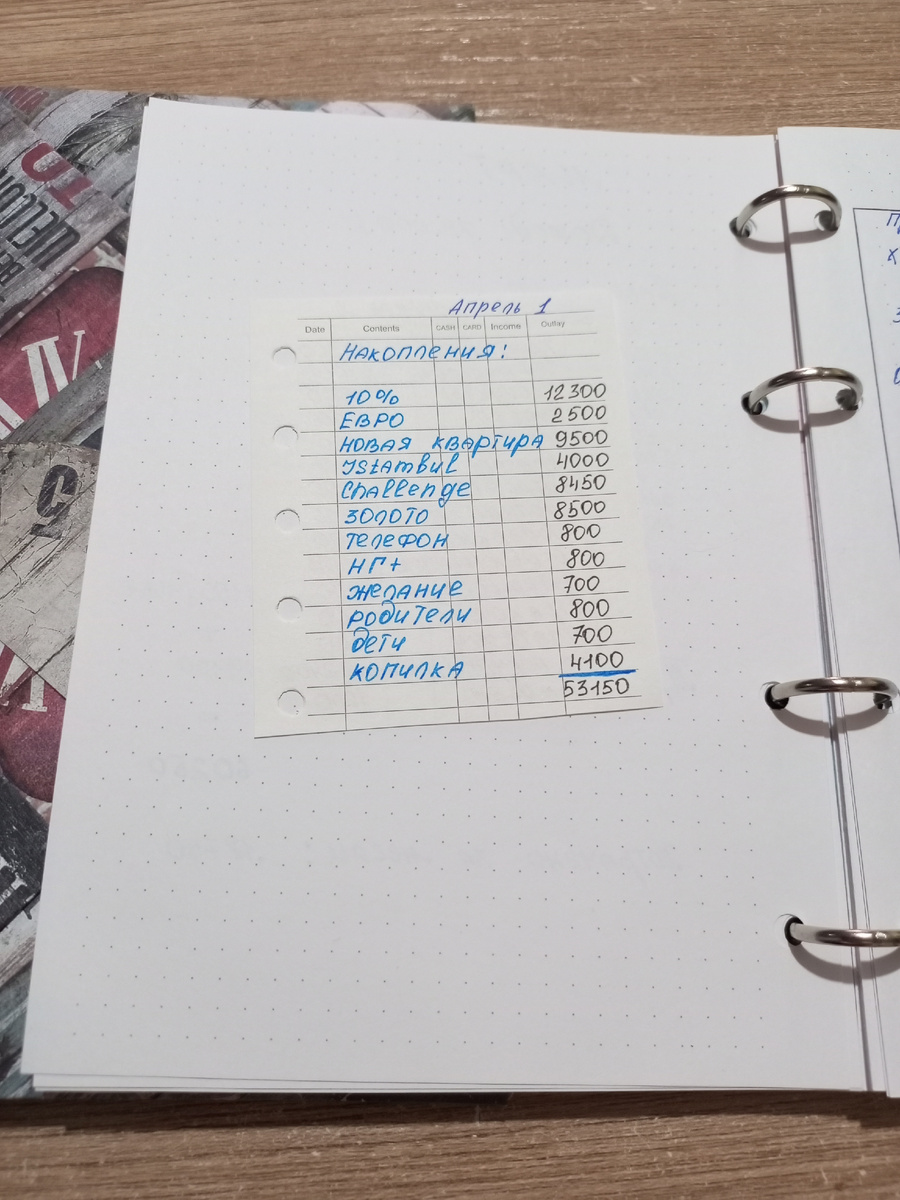 Апрель 1
Date Contents CASH CARD Income Outlay
Накопления:
10% 12300
ЕВРО 2500
Новая квартира 9500
Istambul 4000
Challenge 8450
Золото 8500
Телефон 800
НГ+ 800
Желание 700
Родители 800
Дети 700
Копилка 4100
53150
5